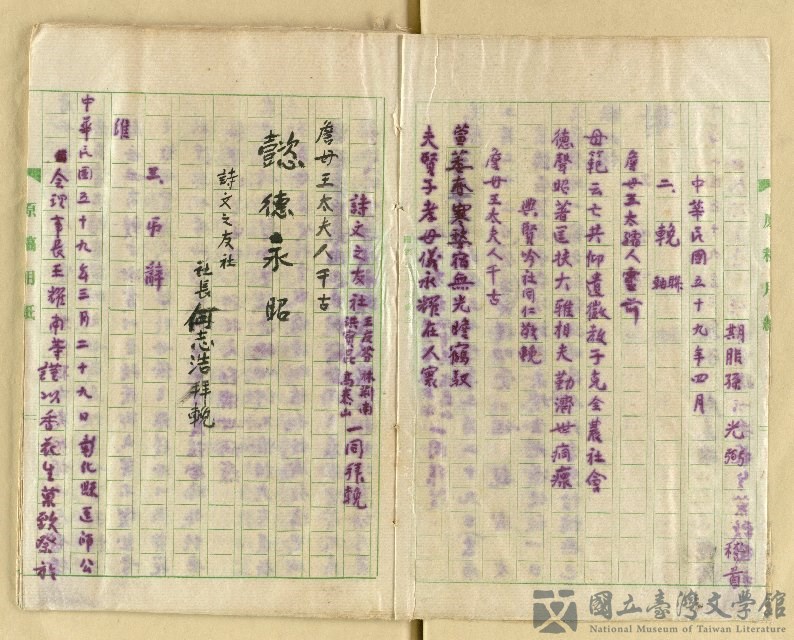 期服孫 光弼
中華民國五十九年四月
二、輓 聯 軸
詹母王太孺人靈前
母範云亡共仰遺徽教子克全農社會
德聲昭著匡扶大雅相夫勤濟世痌瘝
興賢吟社同仁敬輓
詹母王太夫人千古
萱萎春寒婺宿無光瞻鶴馭
夫賢子孝母儀永耀在人寰
詩文之友社 王友芬 林荊南 洪寶昆 高泰山 一同拜輓
詹母王太夫人千古
懿德永昭
詩文之友社
社長 何志浩拜輓
三、弔辭
維
中華民國五十九年三月二十九日彰化縣醫師公
會理事長王耀南等謹以香花生菓致祭於
原稿用紙
國立臺灣文學館
National Museum of Taiwan Literature